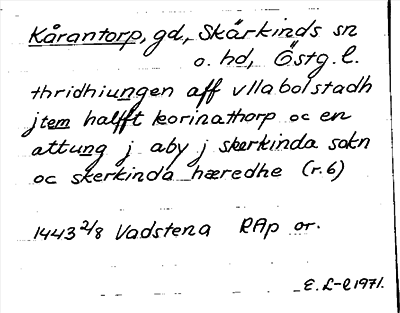 Kårantorp, gd, Skärkinds sn
o. hd, Östg. l.
thridhiungen aff vllabolstadh
jtem halfft korinathorp oc en
attung j aby j skerkinda sokn
oc skerkinda hæredhe (r. 6)
1443 2/8 Vadstena RAp or.
E. L-l 1971.